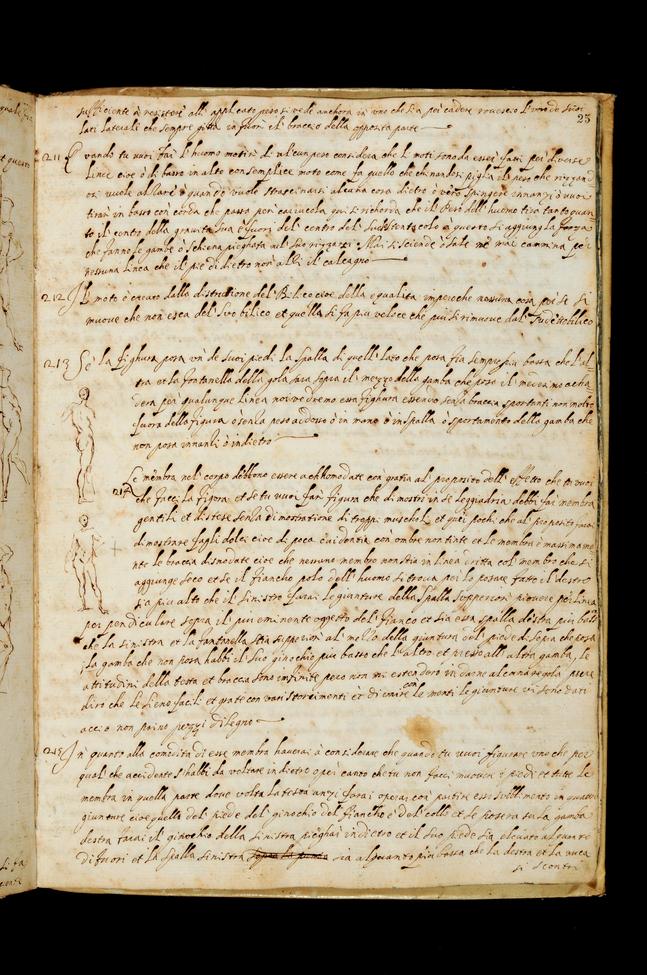 sufficiente à resistere all' applicato peso si vede anchora in uno che sia per cadere rovescio
lati laterali che sempre gitta in fuori il braccio della opposta parte
25
211 Quando tu vuoi far l'huomo motore d' alcun peso considera che li moti sono da esser fatti per diverse
linee cioè o di basso in alto con semplice moto come fa quello che chinandosi piglia il peso che rizzand
osi vuole alzare o quando vuole strascinarsi alcuna cosa dietro o vero spingere innanzi o vuol
tirar in basso con corda che passa per carucola qui si richorda che il peso dell' huomo tira tanto quan
to il centro della gravità sua è fuori del centro del suo sustentacolo a questo si aggiunge la forza
che fanno le gambe o schiena piegata nel suo rizzarsi Mai si sciende o sale ne mai cammina per
nessuna linea che il piè di dietro non alzi il calcagno
212 Il moto è creato dalla distrutione del Bilico cioè della equalità imperoche nessuna cosa per se si
muove che non esca del suo bilico et quella si fa piu veloce che piu si rimuove dal sudetto bilico
213 Se la fighura posa un de suoi piedi la spalla di quell' lato che posa fia sempre piu bassa che l' al
tra et la fontanella della gola sara sopra il mezzo della gamba che posa il medesimo acha
dera per qualunque linea noi vedremo essa fighura essendo senza braccia sportanti non molto
fuora della figura o senza peso adosso o in mano o in spalla o sportamento della gamba che
non posa innanzi o indietro
214 Le membra nel corpo debbono essere achhomodate con gratia al proposito dell' effetto che tu vuoi
che facci la figura et se tu vuoi far figura che dimostri in se leggiadria debbi far membra
gentili et distese senza dimostratione di troppi muscholi et quei pochi che al proposito farai
dimostrare fagli dolci cioè di poca evidentia con ombre non tinte et le membra massimame
nte le braccia disnodate cioè che nessuno membro non stia in linea dritta col membro che si
aggiunge seco et se il fiancho polo dell' huomo si trova per lo posare fatto il destro
sia piu alto che il sinistro farai le giunture della spalla superiori piovere per linea
perpendiculare sopra il piu eminente oggetto del fianco et sia essa spalla destra più bassa
che la sinistra et la fontanella stia superiore al mezzo della giuntura del piede di sopra che posa
la gamba che non posa habbi il suo ginochio piu basso che l'altro et presso all' altra gamba, le
attitudini della testa et braccia sono infinite pero non mi estenderò in darne alcuna regola pure
dirò che le sieno facili et grate con vari storcimenti et di le menti le giunture vi sono dati
accio non paino pezzi di legno
215 In quanto alla comodità di esse membra haverai à considerare che quando tu vuoi figurare uno che per
qualche accidente s' habbi da voltare indietro o per canto che tu non facci muovere i piedi et tutte le
membra in quella parte dove volta la testa anzi farai operare con partire esso svollimento in quattro
giunture cioe quella del piede del ginochio del fiancho e del collo et se posera su la gamba
destra farai il ginochio della sinistra pieghar indietro et il suo piede sia elevato alquanto
di fuori et la spalla sinistra sia alquanto più bassa che la destra et la nuca
si scontri